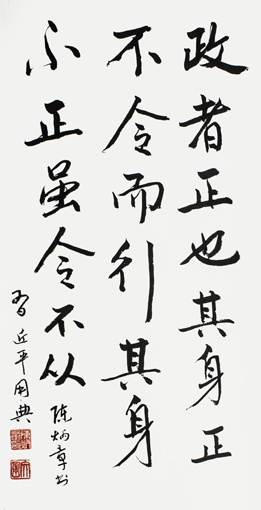 政者正也其身正
不令而行其身
不正虽令不从
习近平用典
陈炳章书